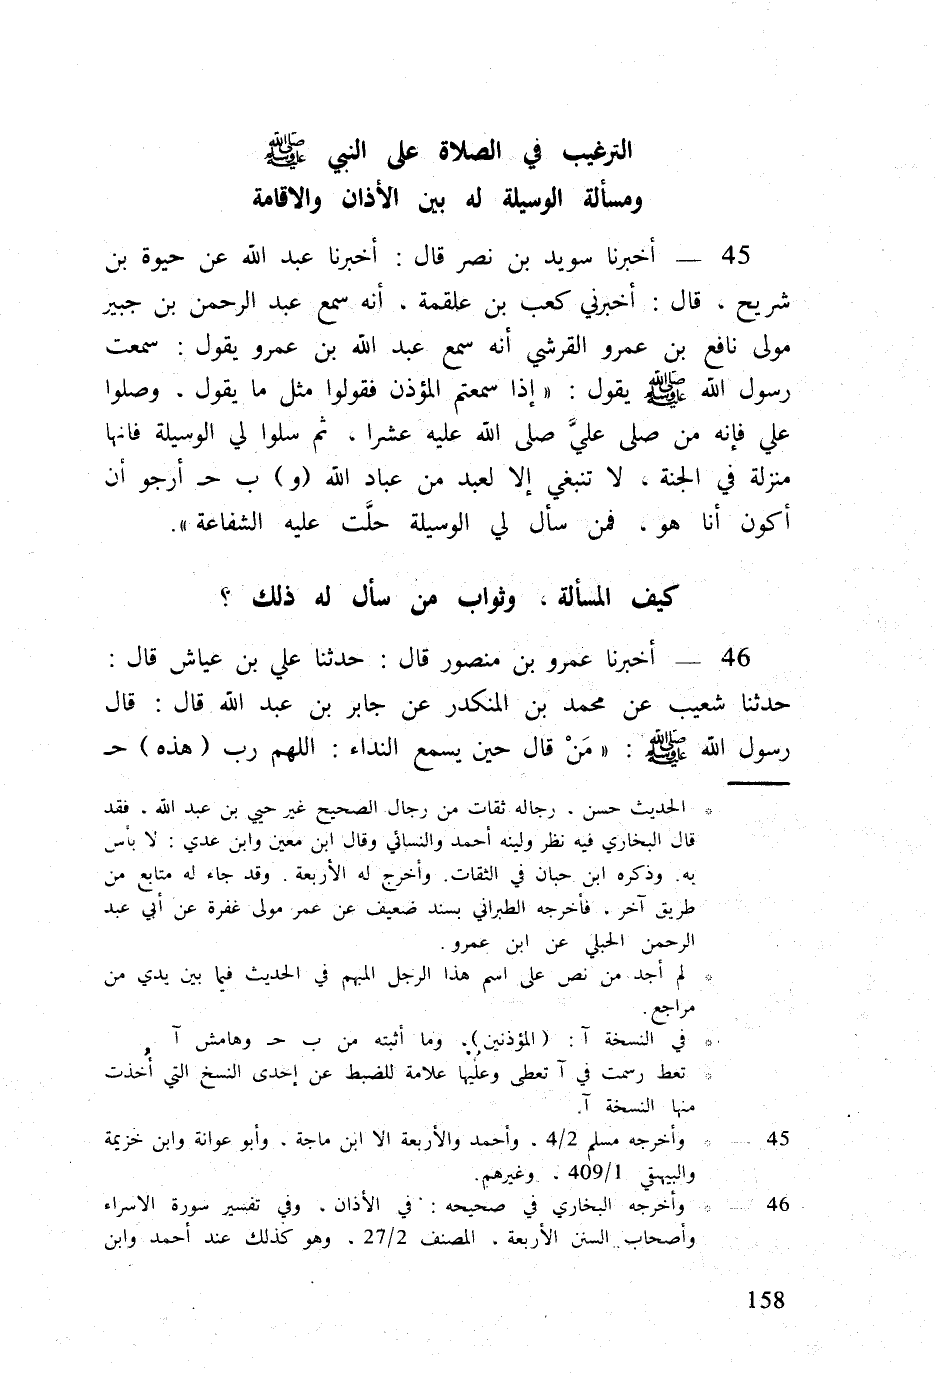 الترغيب في الصلاة على النبي ﷺ
ومسألة الوسيلة له بين الأذان والاقامة
45 — أخبرنا سويد بن نصر قال : أخبرنا عبد الله عن حيوة بن
شريح ، قال : أخبرني كعب بن علقمة ، أنه سمع عبد الرحمن بن جبير
مولى نافع بن عمرو القرشي أنه سمع عبد الله بن عمرو يقول : سمعت
رسول الله ﷺ يقول : « إذا سمعتم المؤذن فقولوا مثل ما يقول . وصلوا
علي فإنه من صلى عليَّ صلى الله عليه عشرا ، ثم سلوا لي الوسيلة فانها
منزلة في الجنة ، لا تنبغي إلا لعبد من عباد الله (و) ب حـ أرجو أن
أكون أنا هو ، فمن سأل لي الوسيلة حلَّت عليه الشفاعة ».
كيف المسألة ، وثواب من سأل له ذلك ؟
46 — أخبرنا عمرو بن منصور قال : حدثنا علي بن عياش قال :
حدثنا شعيب عن محمد بن المنكدر عن جابر بن عبد الله قال : قال
رسول الله ﷺ : « مَنْ قال حين يسمع النداء : اللهم رب ( هذه ) حـ
* الحديث حسن . رجاله ثقات من رجال الصحيح غير حيي بن عبد الله . فقد
قال البخاري فيه نظر ولينه أحمد والنسائي وقال ابن معين وابن عدي : لا بأس
به. وذكره ابن حبان في الثقات. وأخرج له الأربعة . وقد جاء له متابع من
طريق آخر . فأخرجه الطبراني بسند ضعيف عن عمر مولى غفرة عن أبي عبد
الرحمن الحبلي عن ابن عمرو .
* لم أجد من نص على اسم هذا الرجل المبهم في الحديث فيما بين يدي من
مراجع.
* في النسخة آ : (المؤذنين). وما أثبته من ب حـ وهامش آ
* تعط رسمت في آ تعطى وعليها علامة للضبط عن إحدى النسخ التي أُخذت
منها النسخة آ.
45 — * وأخرجه مسلم 4/2 . وأحمد والأربعة الا ابن ماجة . وأبو عوانة وابن خزيمة
والبيهقي 409/1 . وغيرهم.
46 — * وأخرجه البخاري في صحيحه : في الأذان . وفي تفسير سورة الاسراء
وأصحاب السنن الأربعة . المصنف 27/2 . وهو كذلك عند أحمد وابن
158